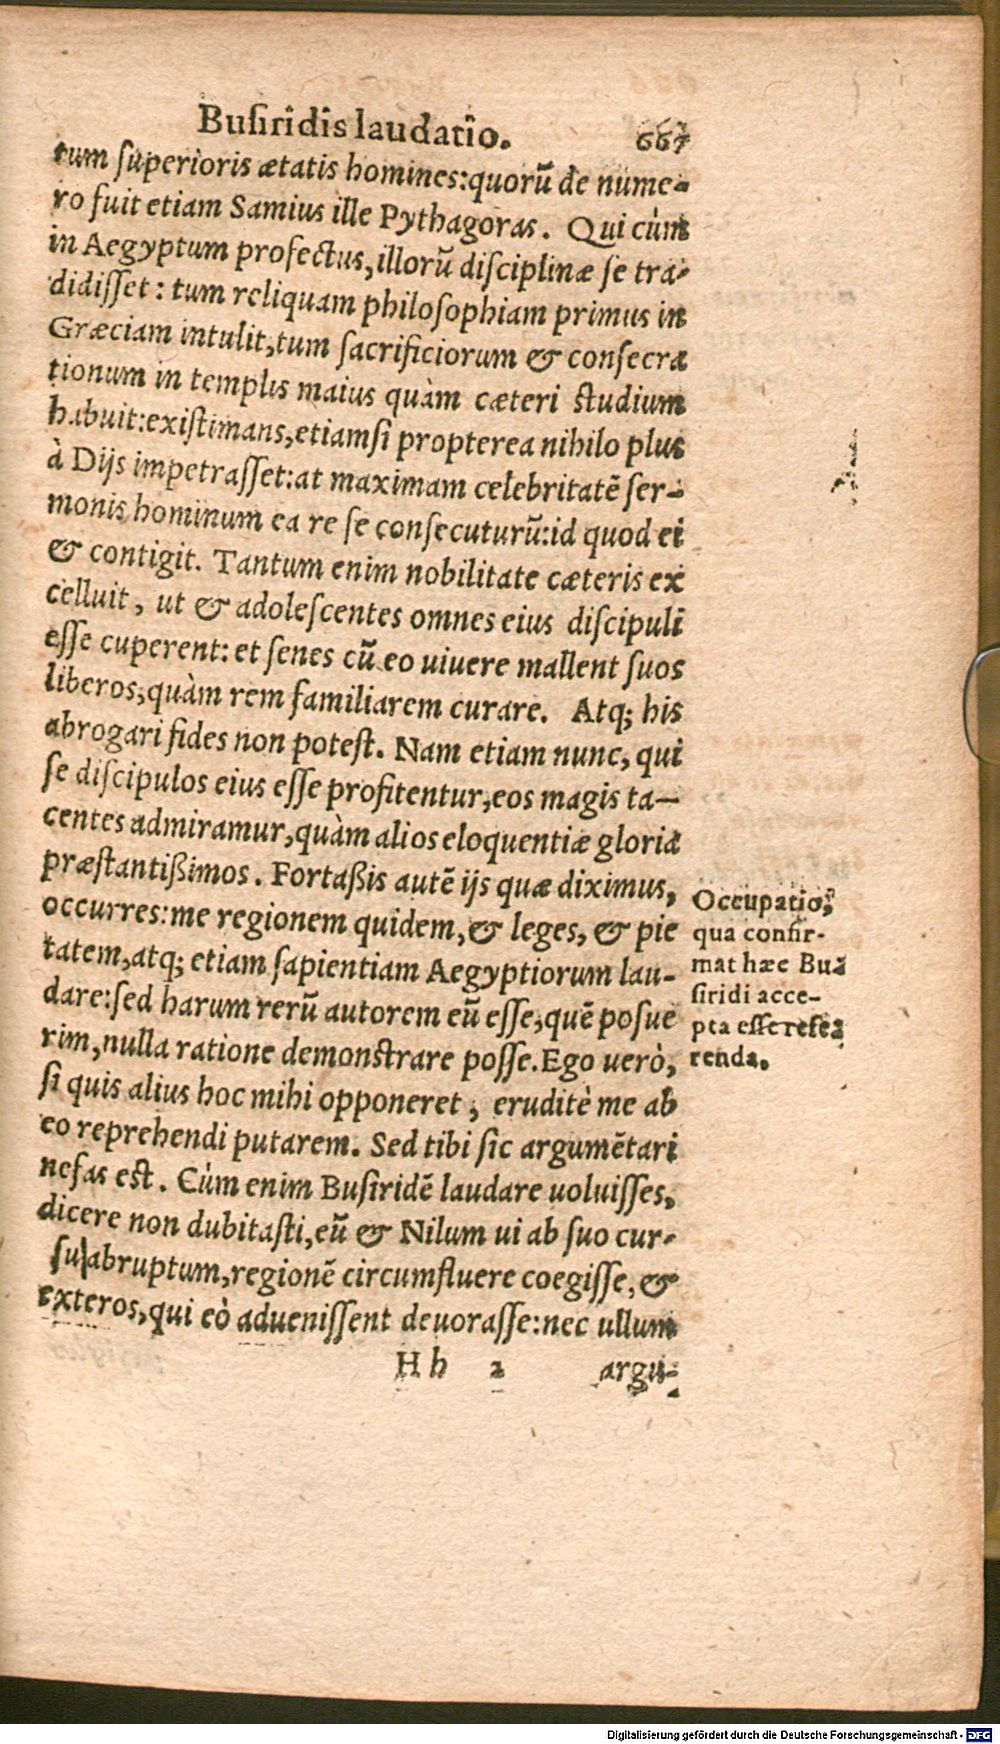 Busiridis laudatio. 667
tum superioris ætatis homines:quorũ de nume-
ro fuit etiam Samius ille Pythagoras. Qui cùm
in Aegyptum profectus, illorũ disciplinæ se tra-
didisset: tum reliquam philosophiam primus in
Græciam intulit, tum sacrificiorum & consecra
tionum in templis maius quàm cæteri studium
habuit:existimans, etiamsi propterea nihilo plus
à Dijs impetrasset:at maximam celebritatẽ ser-
monis hominum ea re se consecuturũ:id quod ei
& contigit. Tantum enim nobilitate cæteris ex
celluit, ut & adolescentes omnes eius discipuli
esse cuperent: et senes cũ eo uiuere mallent suos
liberos, quàm rem familiarem curare. Atq; his
abrogari fides non potest. Nam etiam nunc, qui
se discipulos eius esse profitentur, eos magis ta-
centes admiramur, quàm alios eloquentiæ gloria
præstantißimos. Fortaßis autẽ ijs quæ diximus,
occurres:me regionem quidem, & leges, & pie
tatem, atq; etiam sapientiam Aegyptiorum lau-
dare:sed harum rerũ autorem eũ esse, quẽ posue
rim, nulla ratione demonstrare posse. Ego uerò,
si quis alius hoc mihi opponeret, eruditè me ab
eo reprehendi putarem. Sed tibi sic argumẽtari
nefas est. Cùm enim Busiridẽ laudare uoluisses,
dicere non dubitasti, eũ & Nilum ui ab suo cur-
su abruptum, regionẽ circumfluere coegisse, &
exteros, qui eò aduenissent deuorasse:nec ullum
Hh 2 argu-
Occupatio,
qua confir-
mat hæc Bu-
siridi acce-
pta esse refe-
renda.
Digitalisierung gefördert durch die Deutsche Forschungsgemeinschaft - DFG